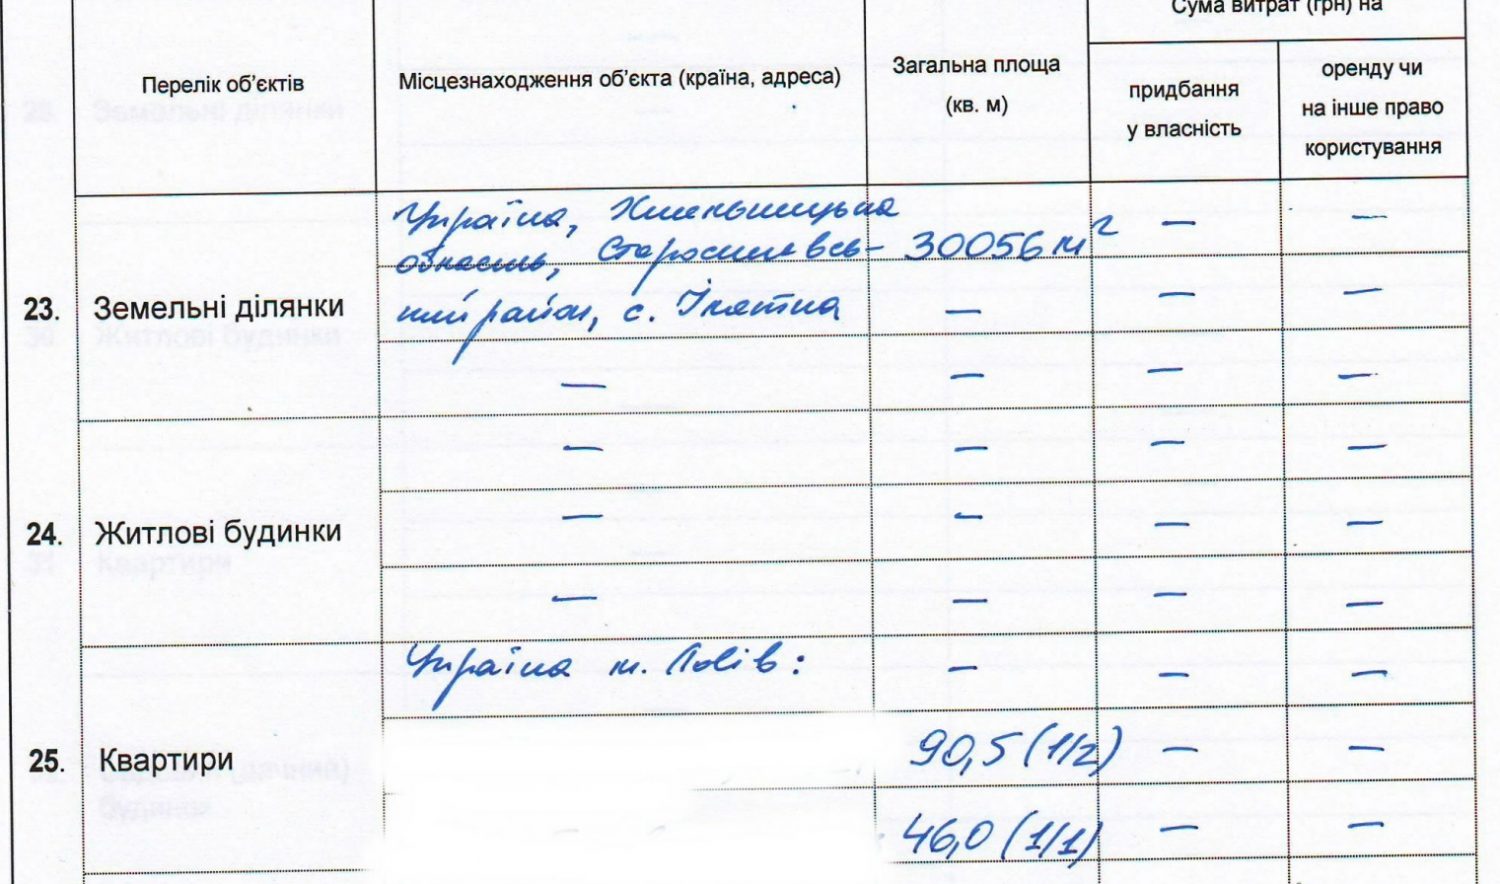 Сума витрат (грн) на
Перелік об'єктів
Місцезнаходження об'єкта (країна, адреса)
Загальна площа
(кв. м)
придбання
у власність
оренду чи
на інше право
користування
Україна, Хмельницька — —
область, Старосинявсь- 30056 м²
23. Земельні ділянки
кий район, с. Ілятка — — —
— — — —
— — — —
24. Житлові будинки
— — — —
— — — —
Україна м. Львів: — — —
25. Квартири
90,5 (1/2) — —
46,0 (1/1) — —